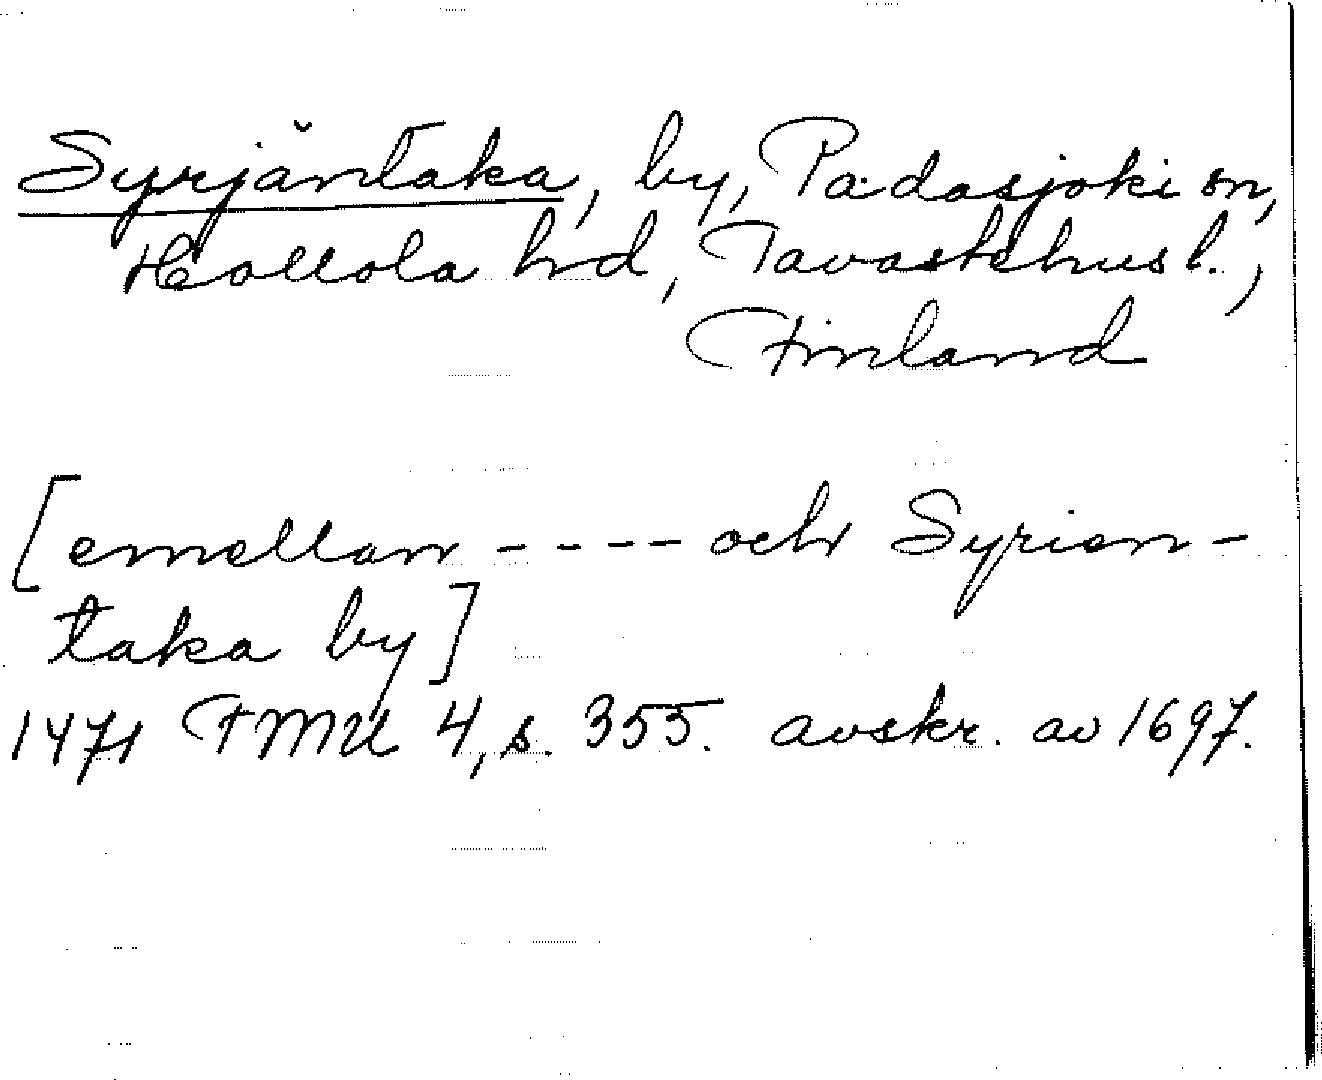 Syrjäntaka, by, Padasjoki sn,
Hollola hd, Tavastehus l.,
Finland
[emellan - - - - och Syrien-
taka by]
1471 FMU 4, s. 355. avskr. av 1697.